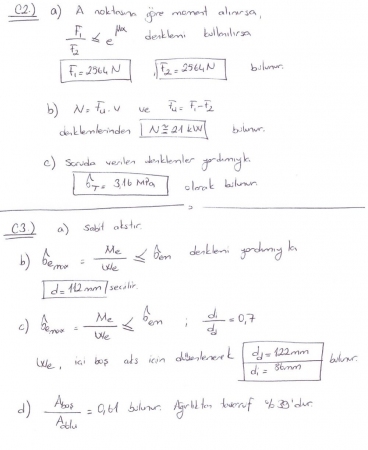 C2.) a) A noktasına göre moment alınırsa,
F₁/F₂ ≤ e^μα denklemi kullanılırsa
F₁=2564N , F₂=2564N bulunur.
b) N=Fu.v ve Fu=F₁-F₂
denklemlerinden N≅21 kW bulunur.
c) Soruda verilen denklemler yardımıyla
σT= 3,16 MPa olarak bulunur.
C3.) a) Sabit akstır.
b) σemax = Me/We ≤ σem denklemi yardımıyla
d=112mm seçilir.
c) σemax = Me/We ≤ σem ; di/dd=0,7
We, içi boş aks için düzenlenerek dd=122mm
di=86mm bulunur.
d) Aboş/Adolu = 0,61 bulunur. Ağırlıktan tasarruf %39'dur.